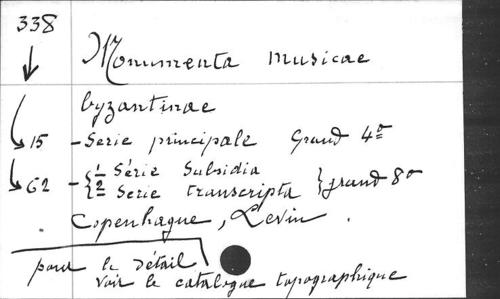 338
Monumenta musicae
byzantinae
15 - Serie principale Grand 4º
62 - { 1 Série Subsidia
2 Serie transcripta } grand 8º
Copenhague, Levin.
pour le détail
voir le catalogue topographique